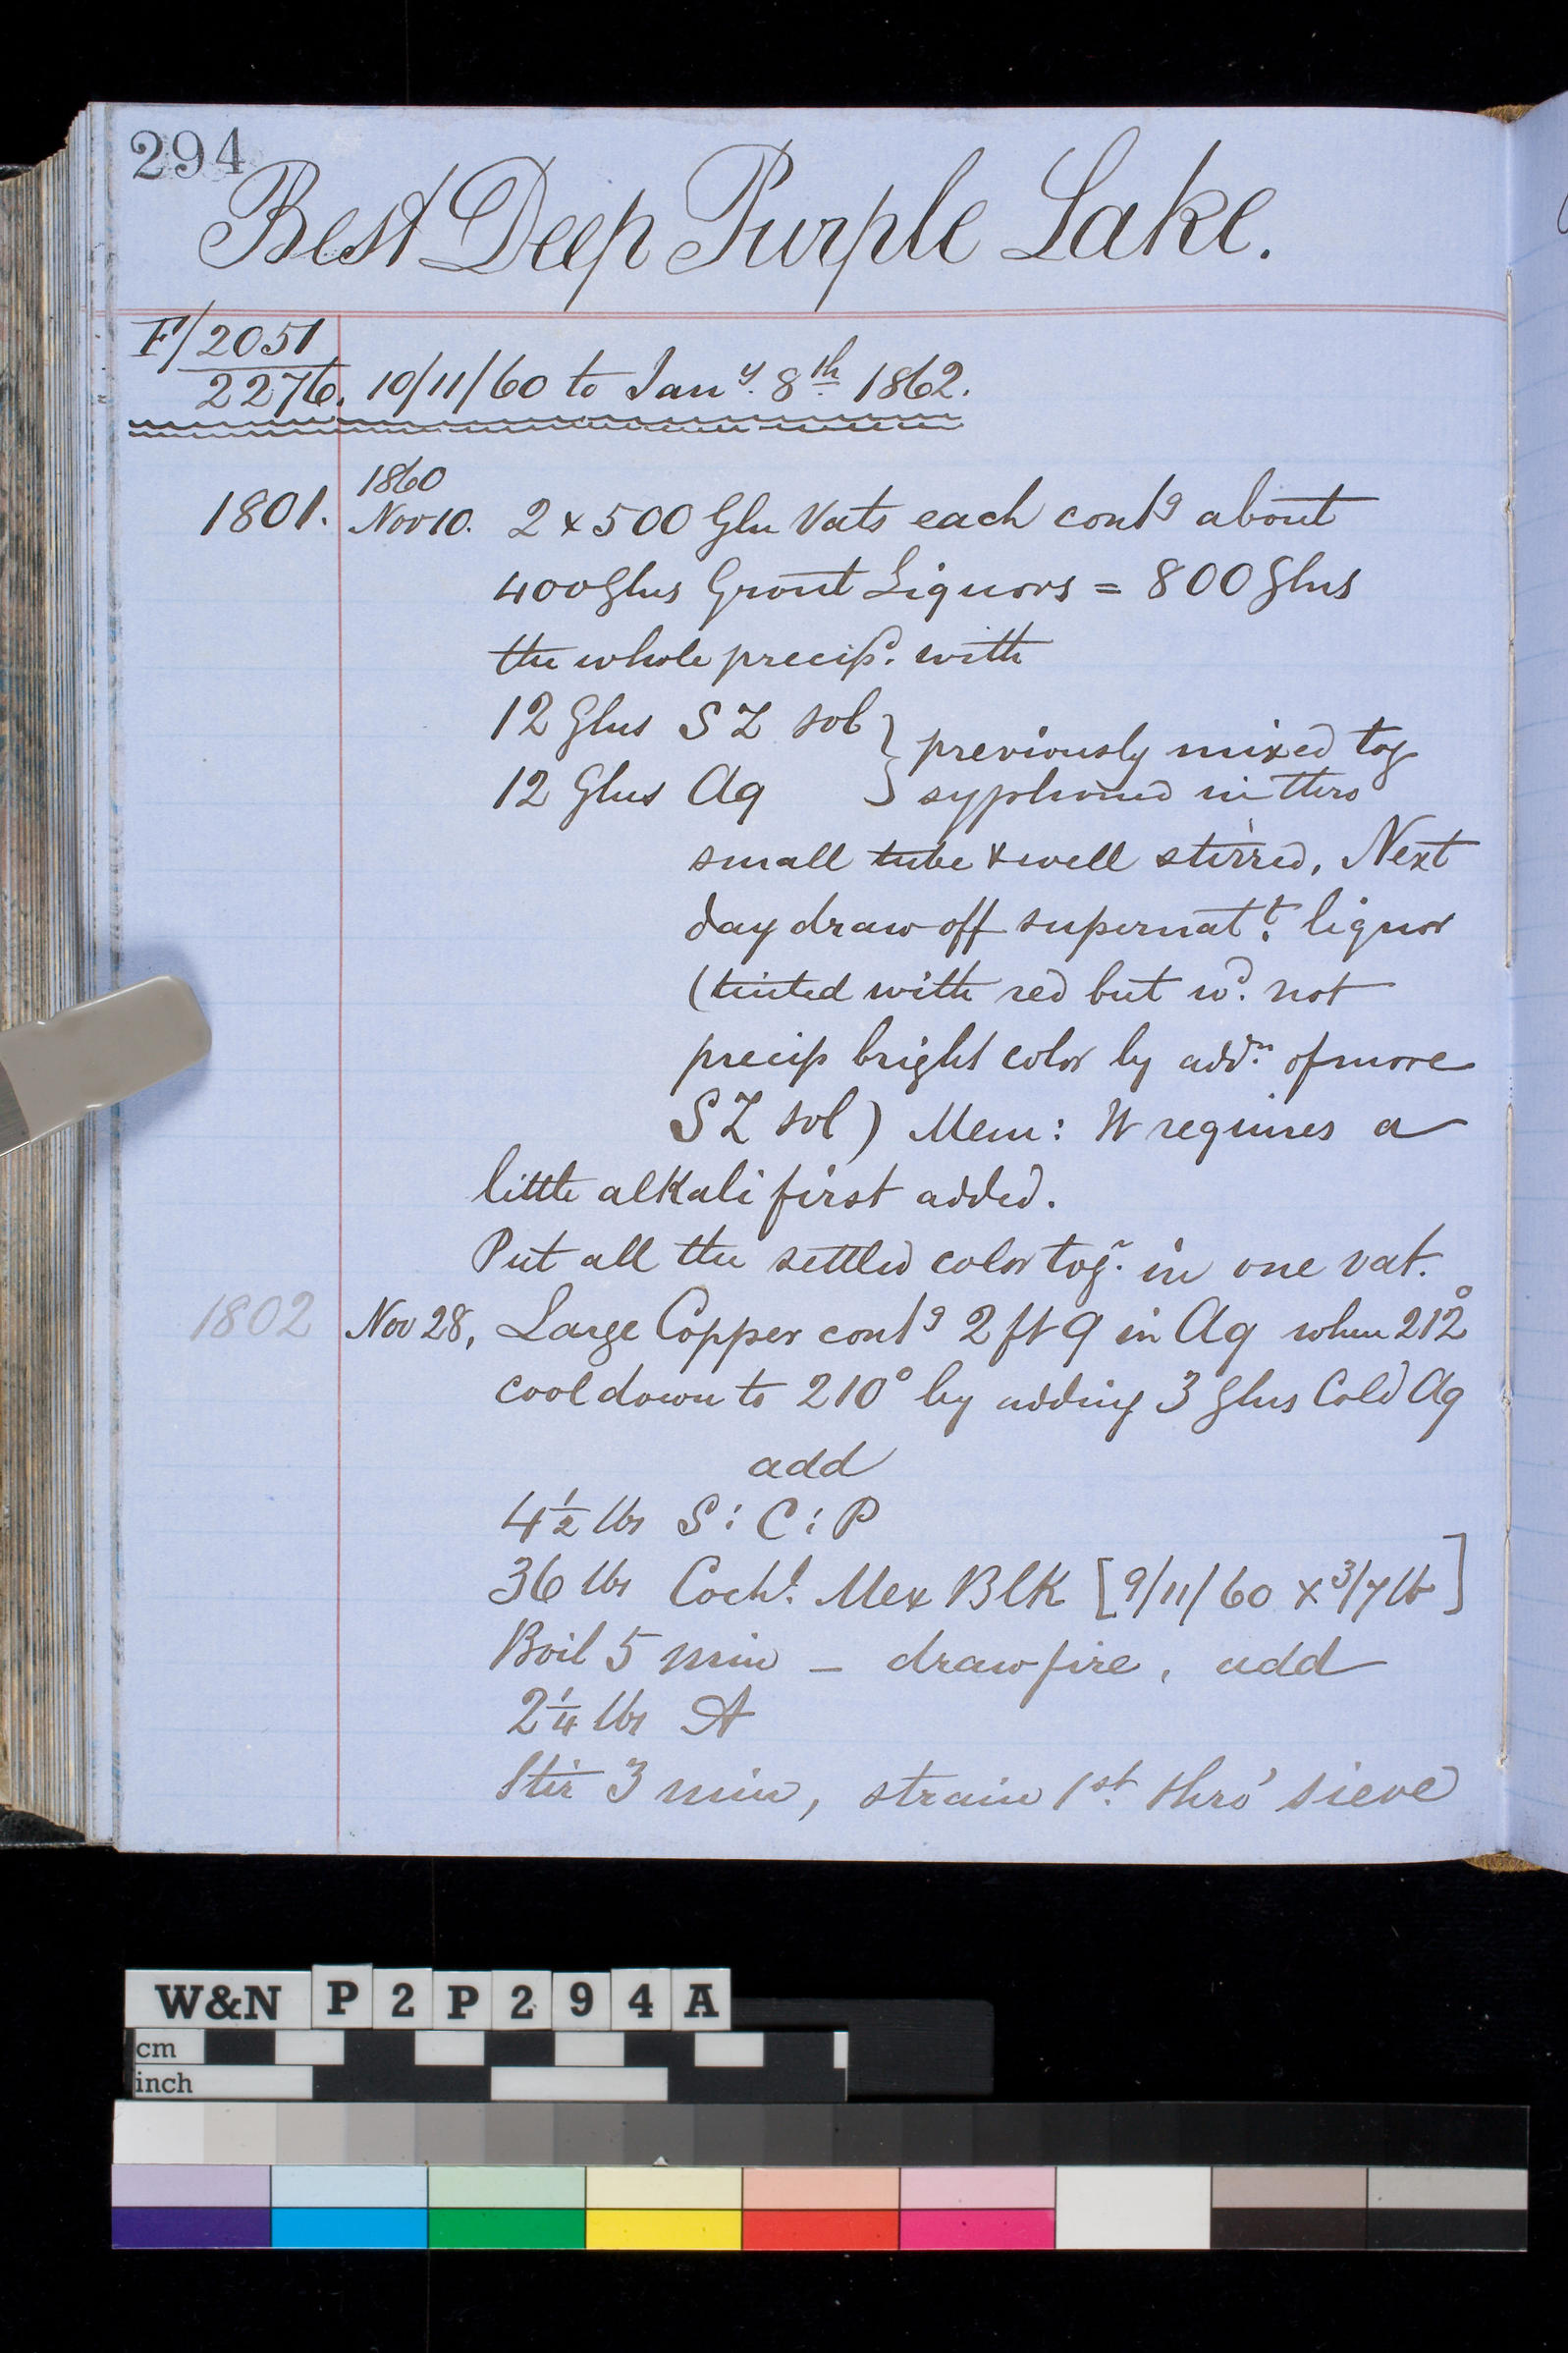 294
Best Deep Purple Lake.
F/2051
2276. 10/11/60 to Jan^y. 8^th 1862.
1860
1801. Nov 10. 2 x 500 Gln Vats each cont^g about
400 Glns Grout Liquors = 800 Glns
the whole precip^d. with
12 Glns S Z sol } previously mixed tog
12 Glns Aq } syphoned in thro
small tube & well stirred, Next
day draw off supernat^t. liquor
(tinted with red but w^d. not
precip bright color by add^n. of more
S Z sol) Mem: It requires a
little alkali first added.
Put all the settled color tog^r. in one vat.
1802 Nov 28, Large Copper cont^g 2 ft 9 in Aq when 212°
cool down to 210° by adding 3 Glns Cold Aq
add
4½ lbs S : C : P
36 lbs Coch^l. Mex Blk [9/11/60 x 3/7 lb]
Boil 5 min – draw fire, add
2¼ lbs A
Stir 3 min, strain 1^st. thro' sieve
W&N P 2 P 2 9 4 A
cm
inch